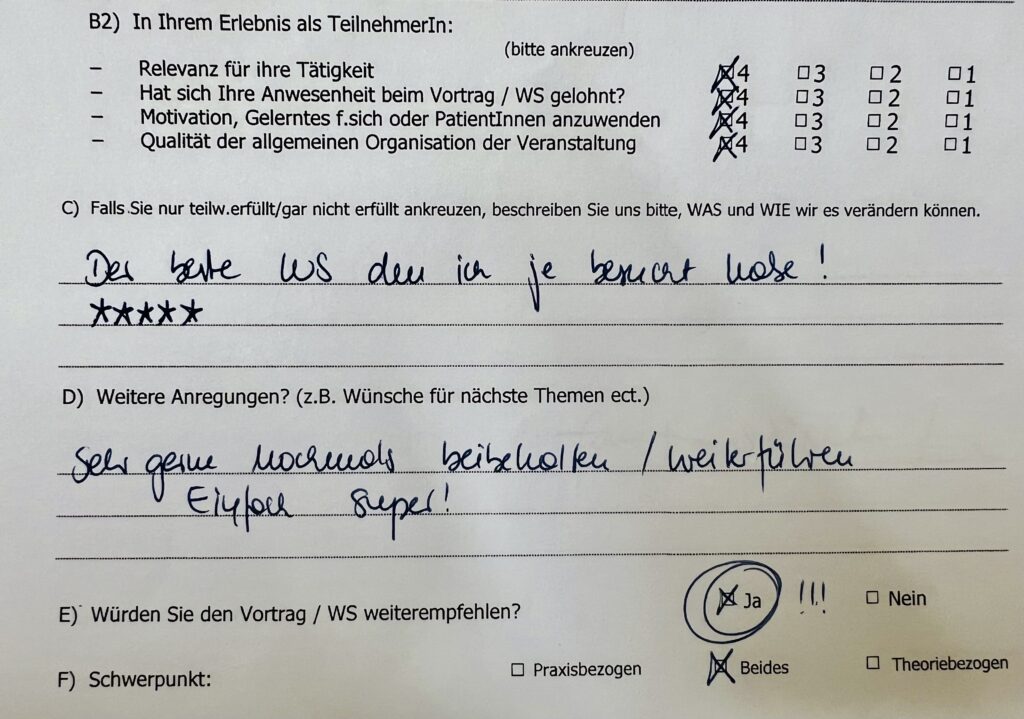 B2) In Ihrem Erlebnis als TeilnehmerIn:
(bitte ankreuzen)
– Relevanz für ihre Tätigkeit ☒4 ☐3 ☐2 ☐1
– Hat sich Ihre Anwesenheit beim Vortrag / WS gelohnt? ☒4 ☐3 ☐2 ☐1
– Motivation, Gelerntes f.sich oder PatientInnen anzuwenden ☒4 ☐3 ☐2 ☐1
– Qualität der allgemeinen Organisation der Veranstaltung ☒4 ☐3 ☐2 ☐1
C) Falls Sie nur teilw.erfüllt/gar nicht erfüllt ankreuzen, beschreiben Sie uns bitte, WAS und WIE wir es verändern können.
Der beste WS den ich je besucht habe!
★★★★★
D) Weitere Anregungen? (z.B. Wünsche für nächste Themen ect.)
Sehr gerne nochmals beibehalten / weiterführen
Einfach super!
E) Würden Sie den Vortrag / WS weiterempfehlen? ☒ Ja !!! ☐ Nein
F) Schwerpunkt: ☐ Praxisbezogen ☒ Beides ☐ Theoriebezogen